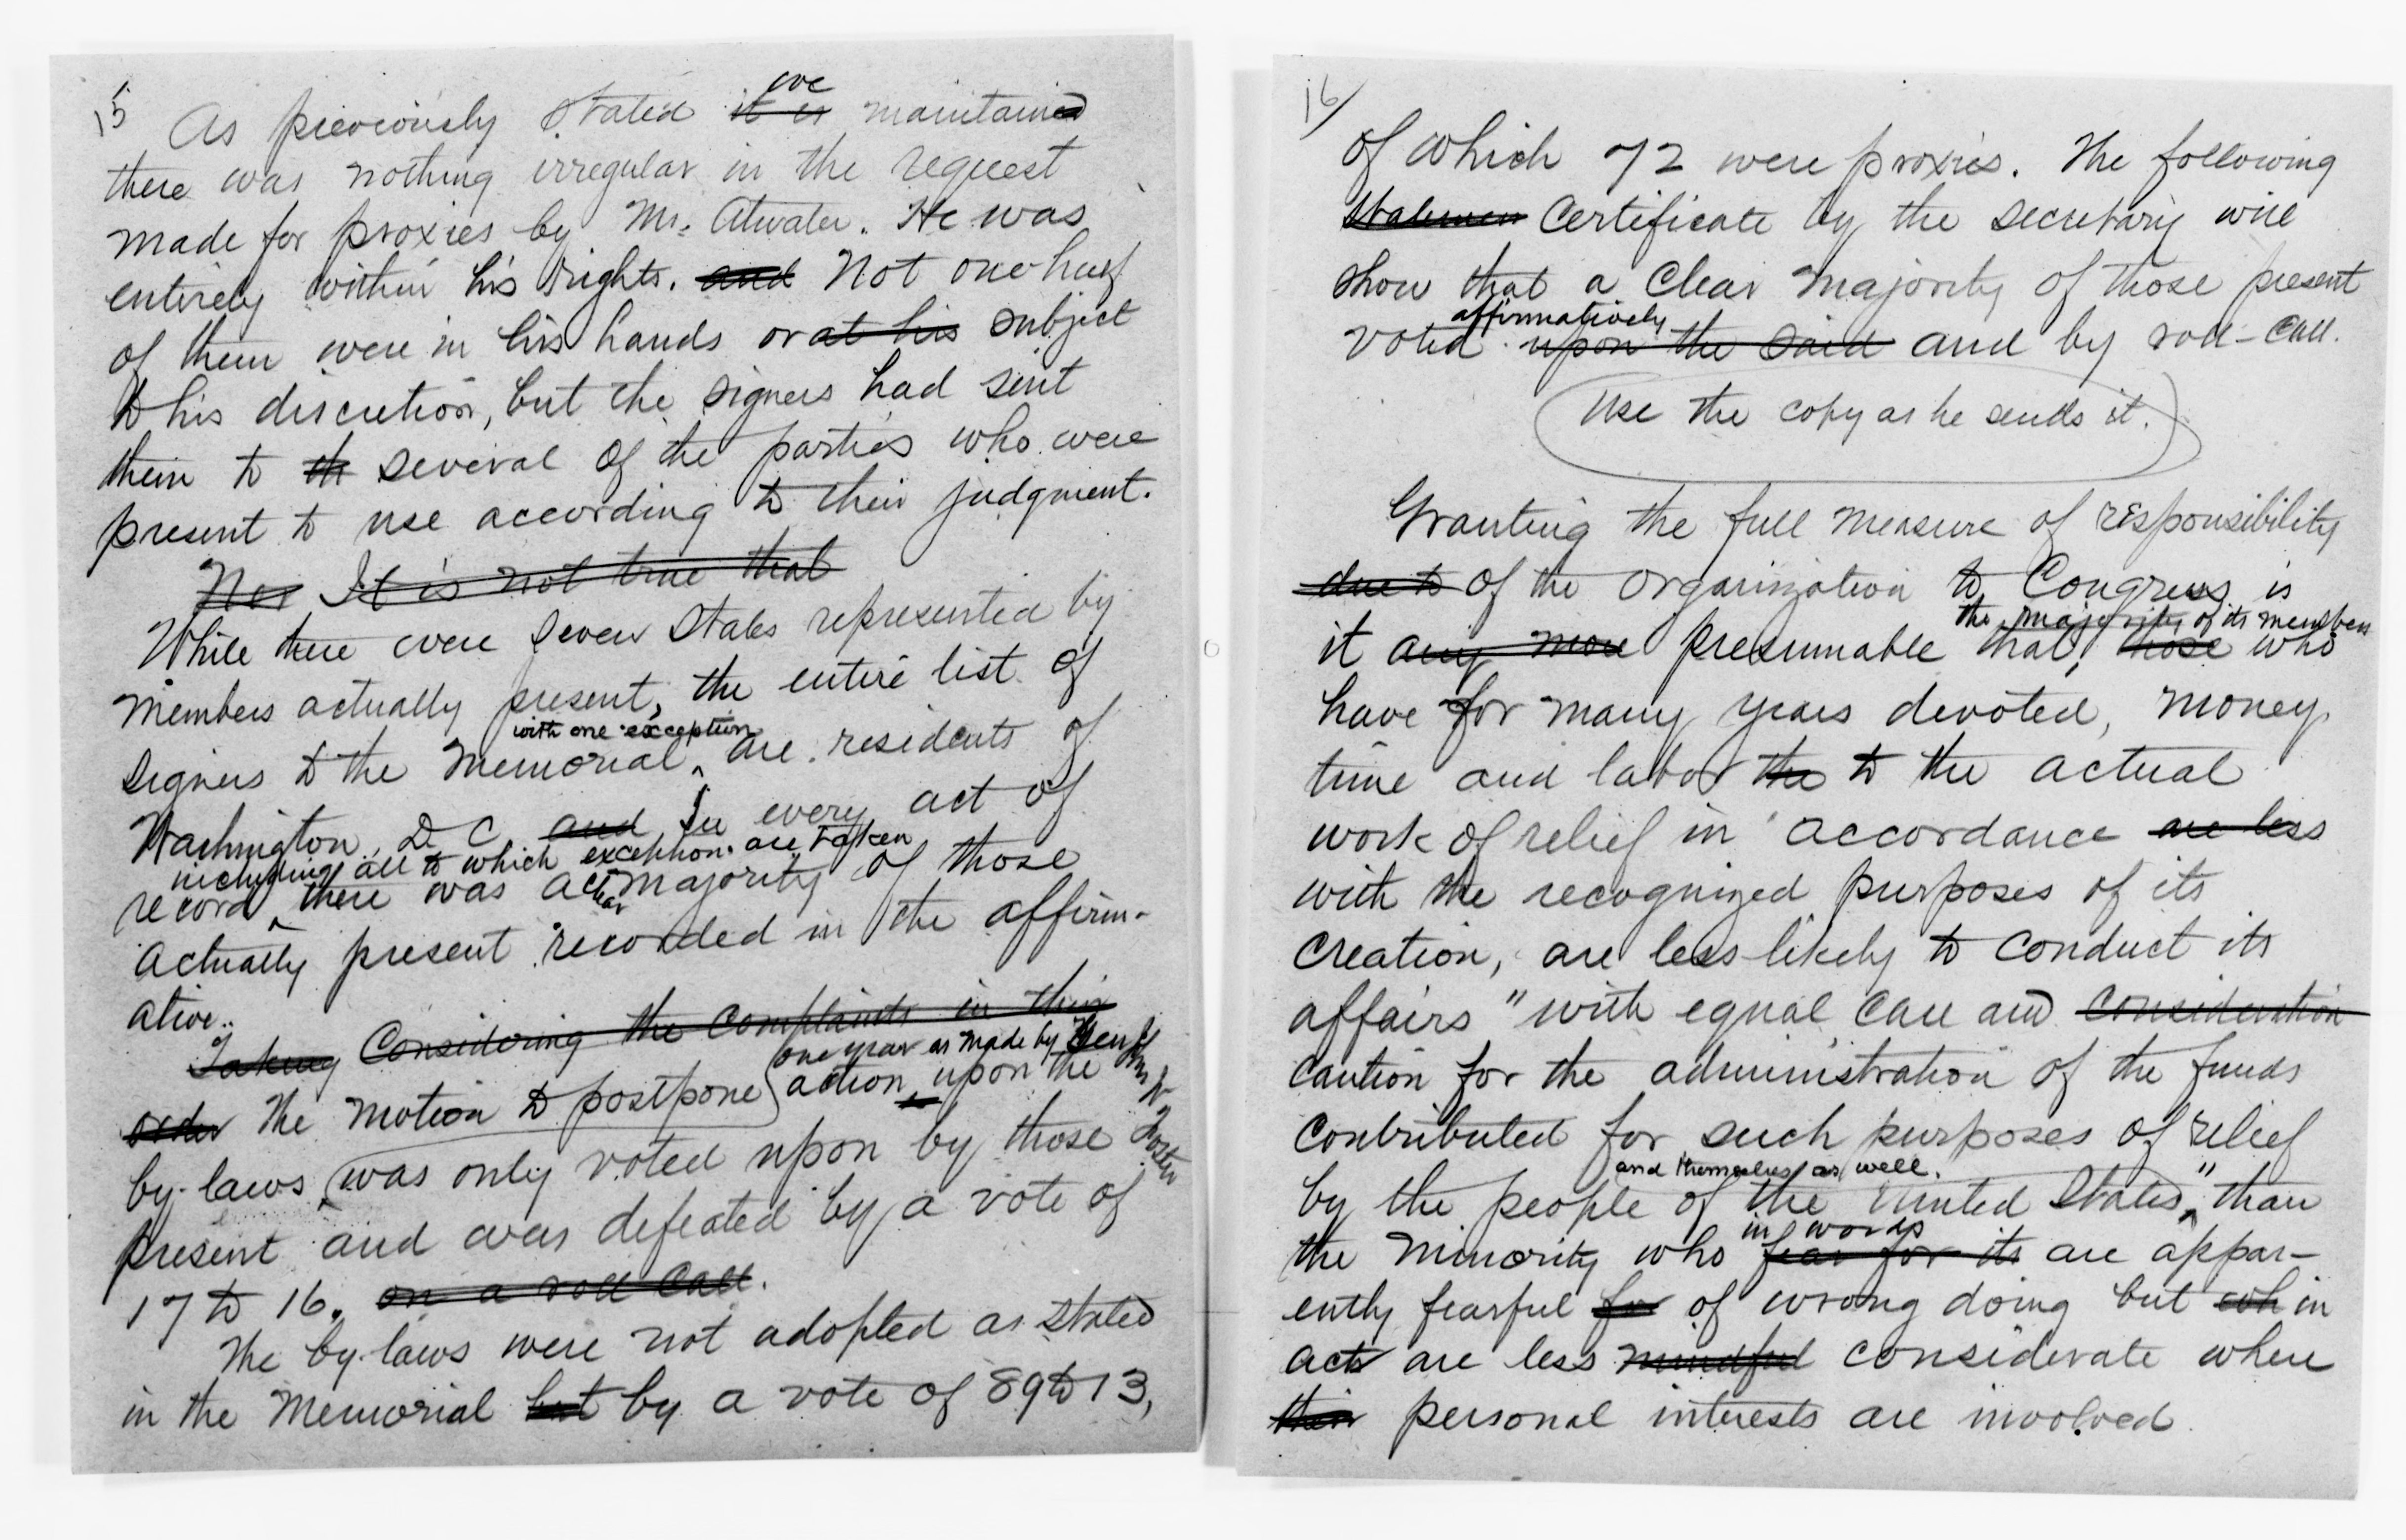 15
As previously stated it is we maintained
there was nothing irregular in the request
made for proxies by Mr. Atwater. He was
entirely within his rights. and Not one half
of them were in his hands or at his subject
to his discretion, but the signers had sent
them to th several of the parties who were
present to use according to their judgment.
Nor It is not true that
While there were seven States represented by
members actually present, the entire list of
with one exception
signers to the Memorial are residents of
Washington, D C. and In every act of
including all to which exception are taken
record there was a clear majority of those
actually present recorded in the affirm-
ative.
Taking Considering the Complaints in their
one year as made by
order The motion to postpone action upon the
by-laws was only voted upon by those
Foster
present and was defeated by a vote of
17 to 16. on a roll call.
The by-laws were not adopted as stated
in the Memorial but by a vote of 89 to 13,
16/
of which 72 were proxies. The following
Statemen Certificate by the secretary will
show that a clear majority of those present
affirmatively
voted upon the said and by roll-call.
Use the copy as he sends it.
Granting the full measure of responsibility
due to of the organization to Congress, is
the majority of its members
it any more presumable that, those who
have for many years devoted, money,
time and labor the to the actual
work of relief in accordance are less
with the recognized purposes of its
creation, are less likely to conduct its
affairs "with equal care and consideration
caution for the administration of the funds
contributed for such purposes of relief
and themselves as well.
by the people of the United States," than
in words
the minority who fear for its are appar-
ently fearful for of wrong doing but wh in
acts are less mindful considerate where
their personal interests are involved.